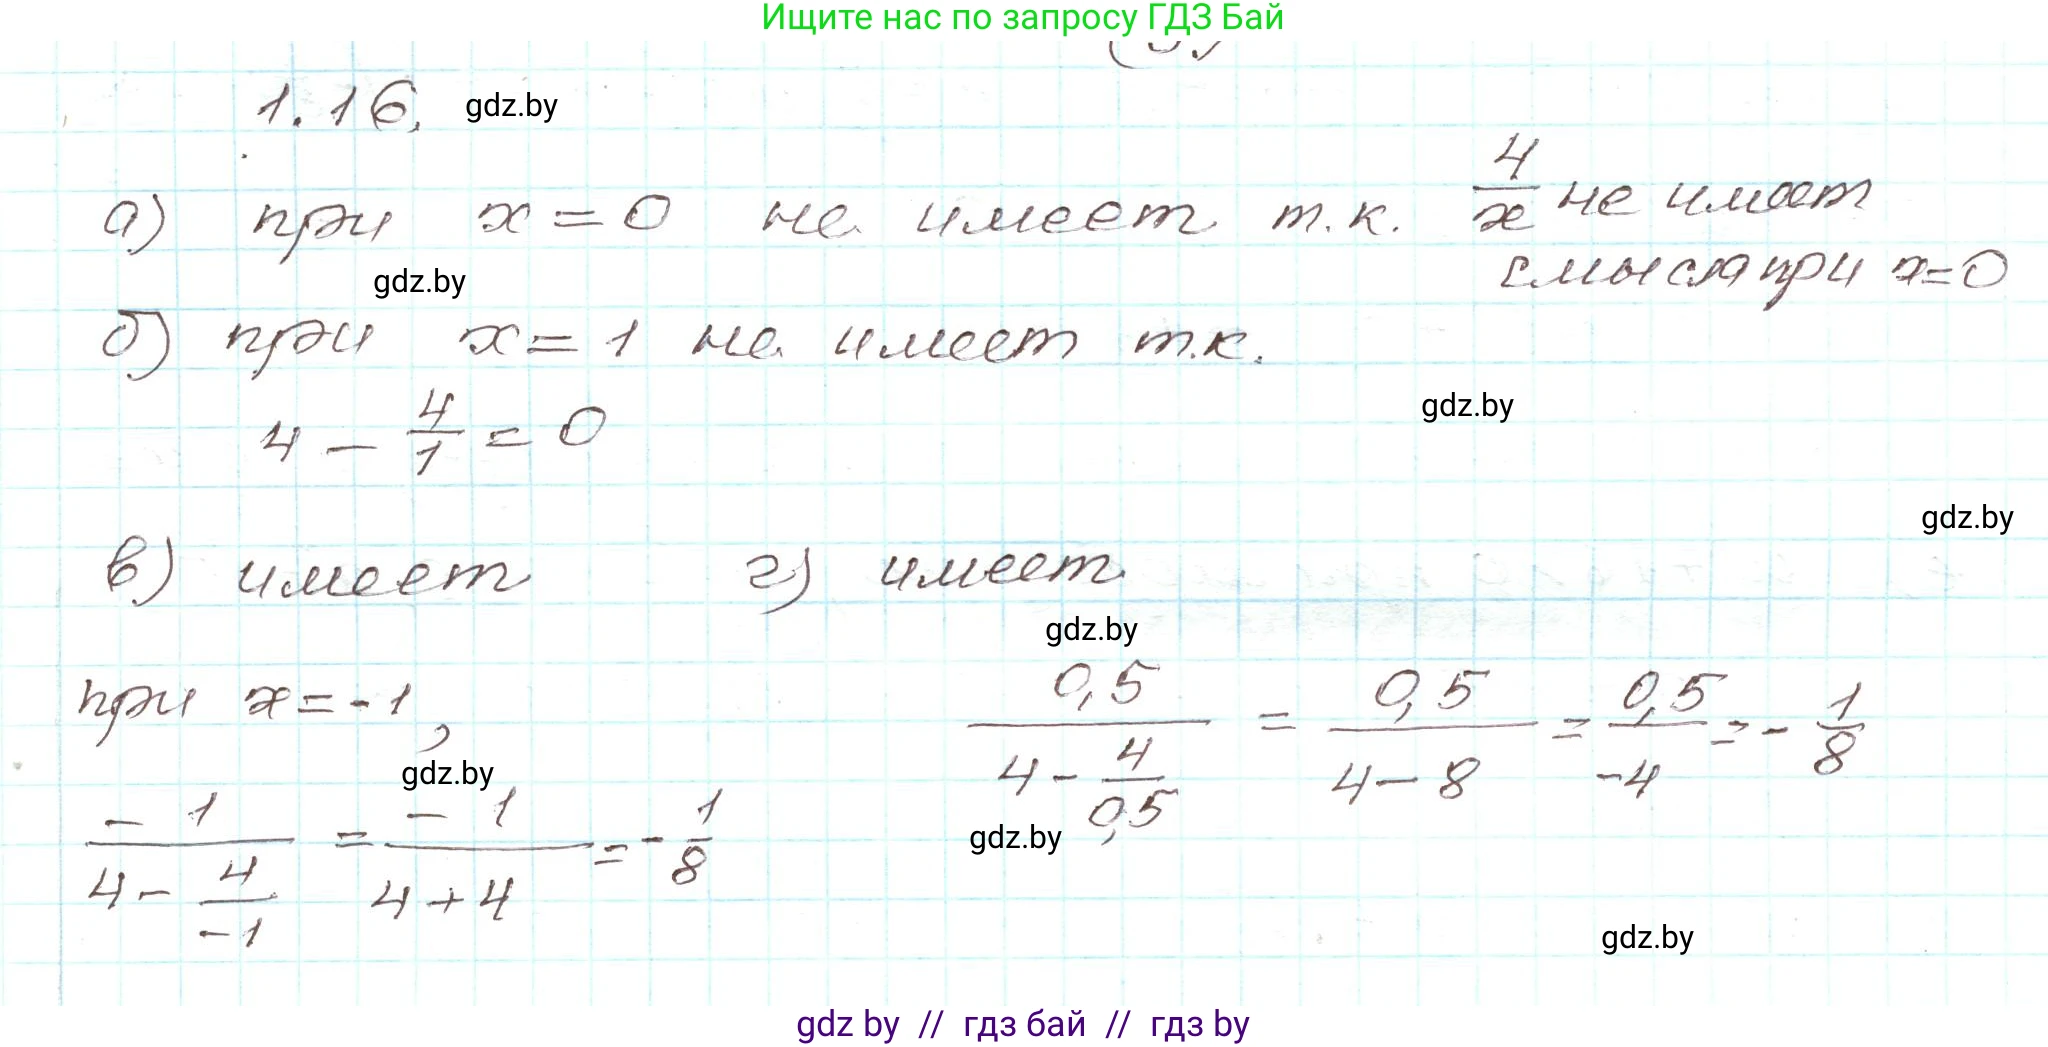 Ищите нас по запросу ГДЗ Бай
1.16. gdz.by
а) при x = 0 не имеет т.к. 4/x не имеет
смысла при x=0
gdz.by
б) при x = 1 не имеет т.к.
4 - 4/1 = 0
gdz.by
gdz.by
в) имеет г) имеет
gdz.by
при x = -1,
0,5/(4 - 4/0,5) = 0,5/(4 - 8) = 0,5/-4 = - 1/8
gdz.by
-1/(4 - 4/-1) = -1/(4 + 4) = - 1/8
gdz.by
gdz.by
gdz by // гдз бай // гдз by